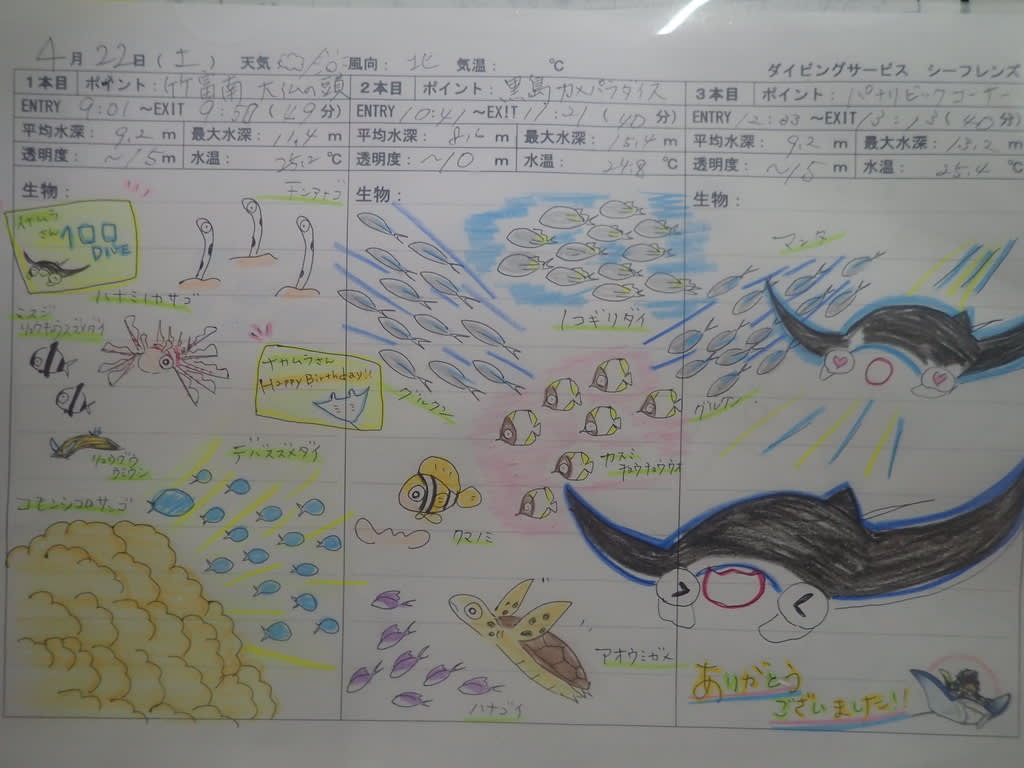 4月22日(土) 天気 風向: 北 気温: ℃
ダイビングサービス シーフレンズ
1本目 ポイント: 竹富南 大仏の頭
ENTRY 9:01 ~EXIT 9:50 (49分)
平均水深: 9.2 m 最大水深: 11.4 m
透明度: ~15 m 水温: 25.2 ℃
生物:
さん
100
DIVE
チンアナゴ
ハナミノカサゴ
ミスジ
リュウキュウスズメダイ
リュウグウ
ウミウシ
デバスズメダイ
コモンシコロサンゴ
2本目 ポイント: 黒島 カメパラダイス
ENTRY 10:41 ~EXIT 11:21 (40分)
平均水深: 8.6 m 最大水深: 15.4 m
透明度: ~10 m 水温: 24.8 ℃
生物:
ノコギリダイ
ナカムラさん
Happy Birthday!!
グルクン
カスミ
チョウチョウウオ
クマノミ
アオウミガメ
ハナゴイ
3本目 ポイント: パナリビックコーナー
ENTRY 12:33 ~EXIT 13:13 (40分)
平均水深: 9.2 m 最大水深: 13.2 m
透明度: ~15 m 水温: 25.4 ℃
生物:
マンタ
グルクン
ありがとう
ございました!!